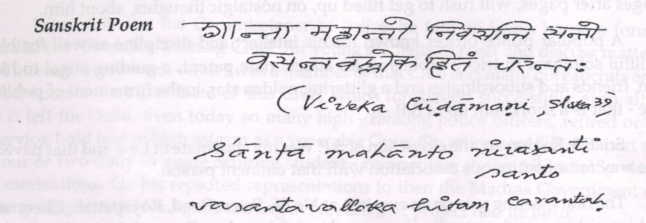 Sanskrit Poem
शान्ता महान्तो निवसन्ति सन्तो
वसन्तवल्लोक हितं चरन्तः
(Viveka Cūdāmani, sloka 39)
Sāntā mahānto nivasanti
santo
vasantavalloka hitam carantah